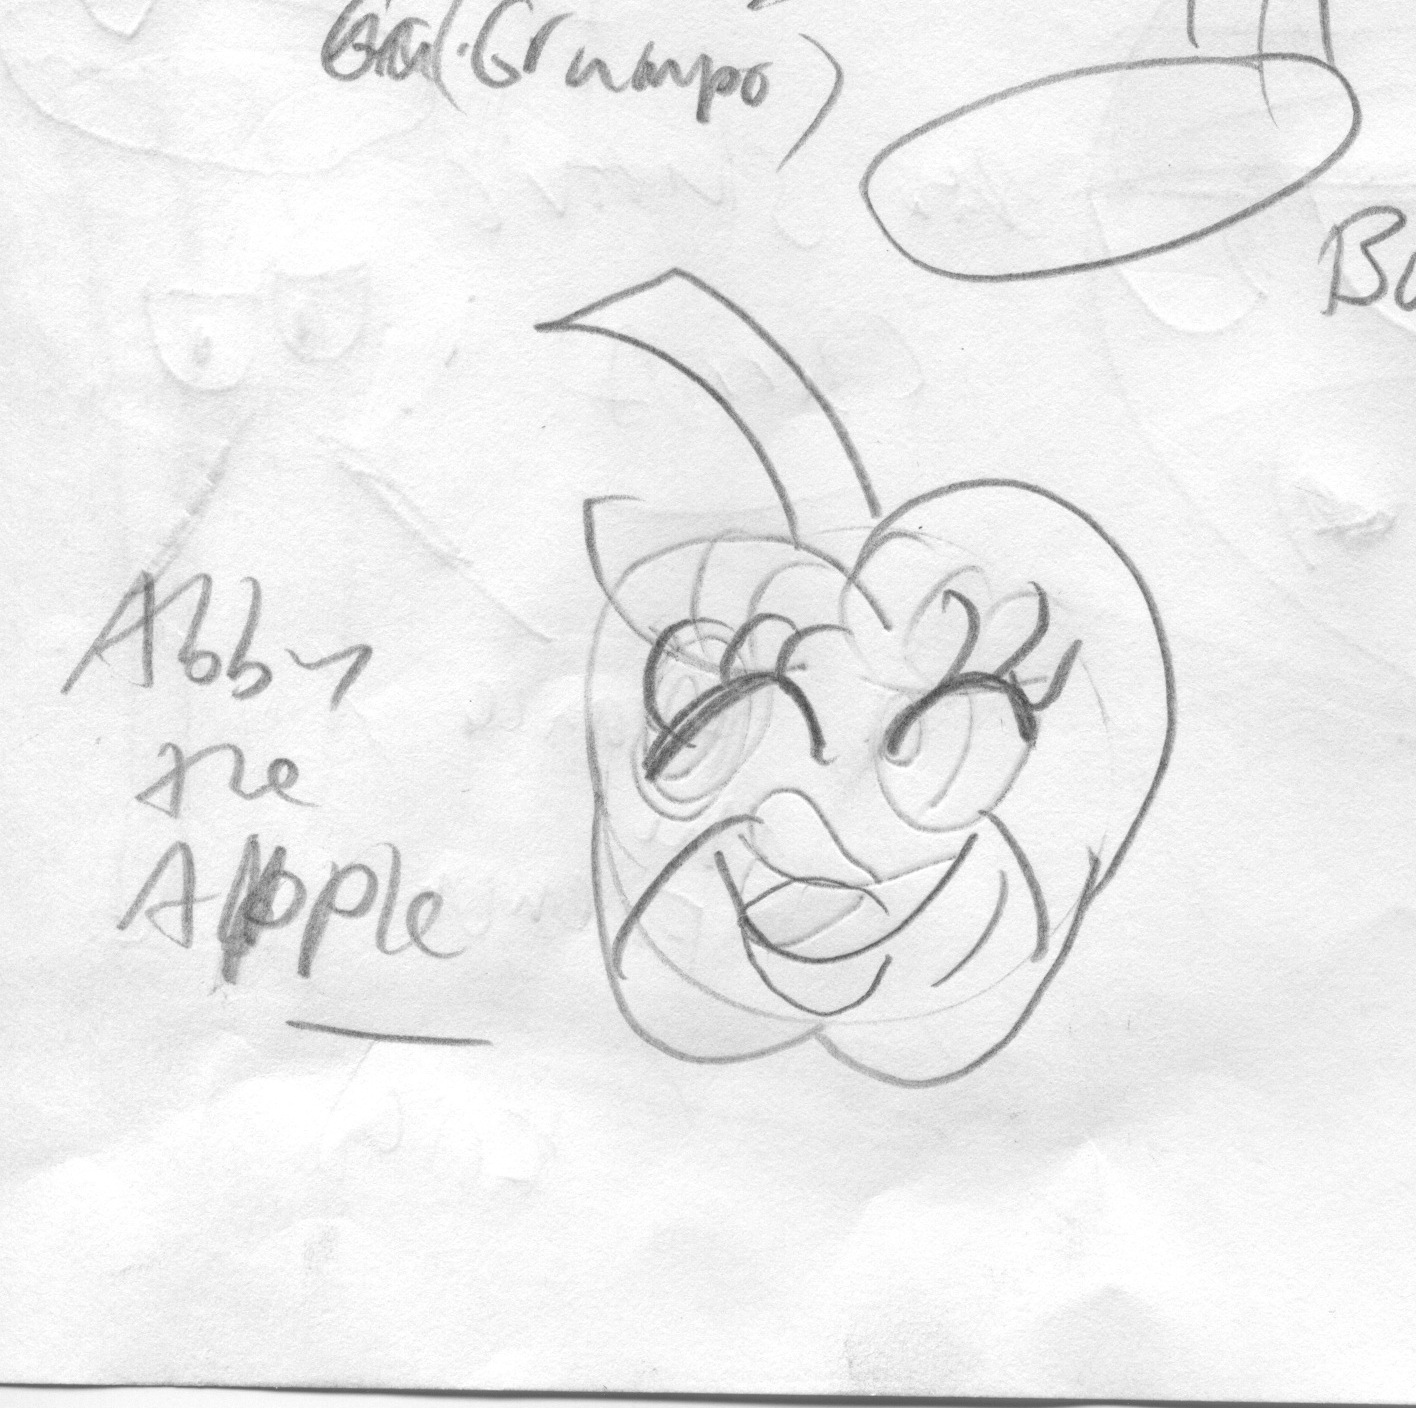 (Grumpo)
Bu
Abby
the
Apple